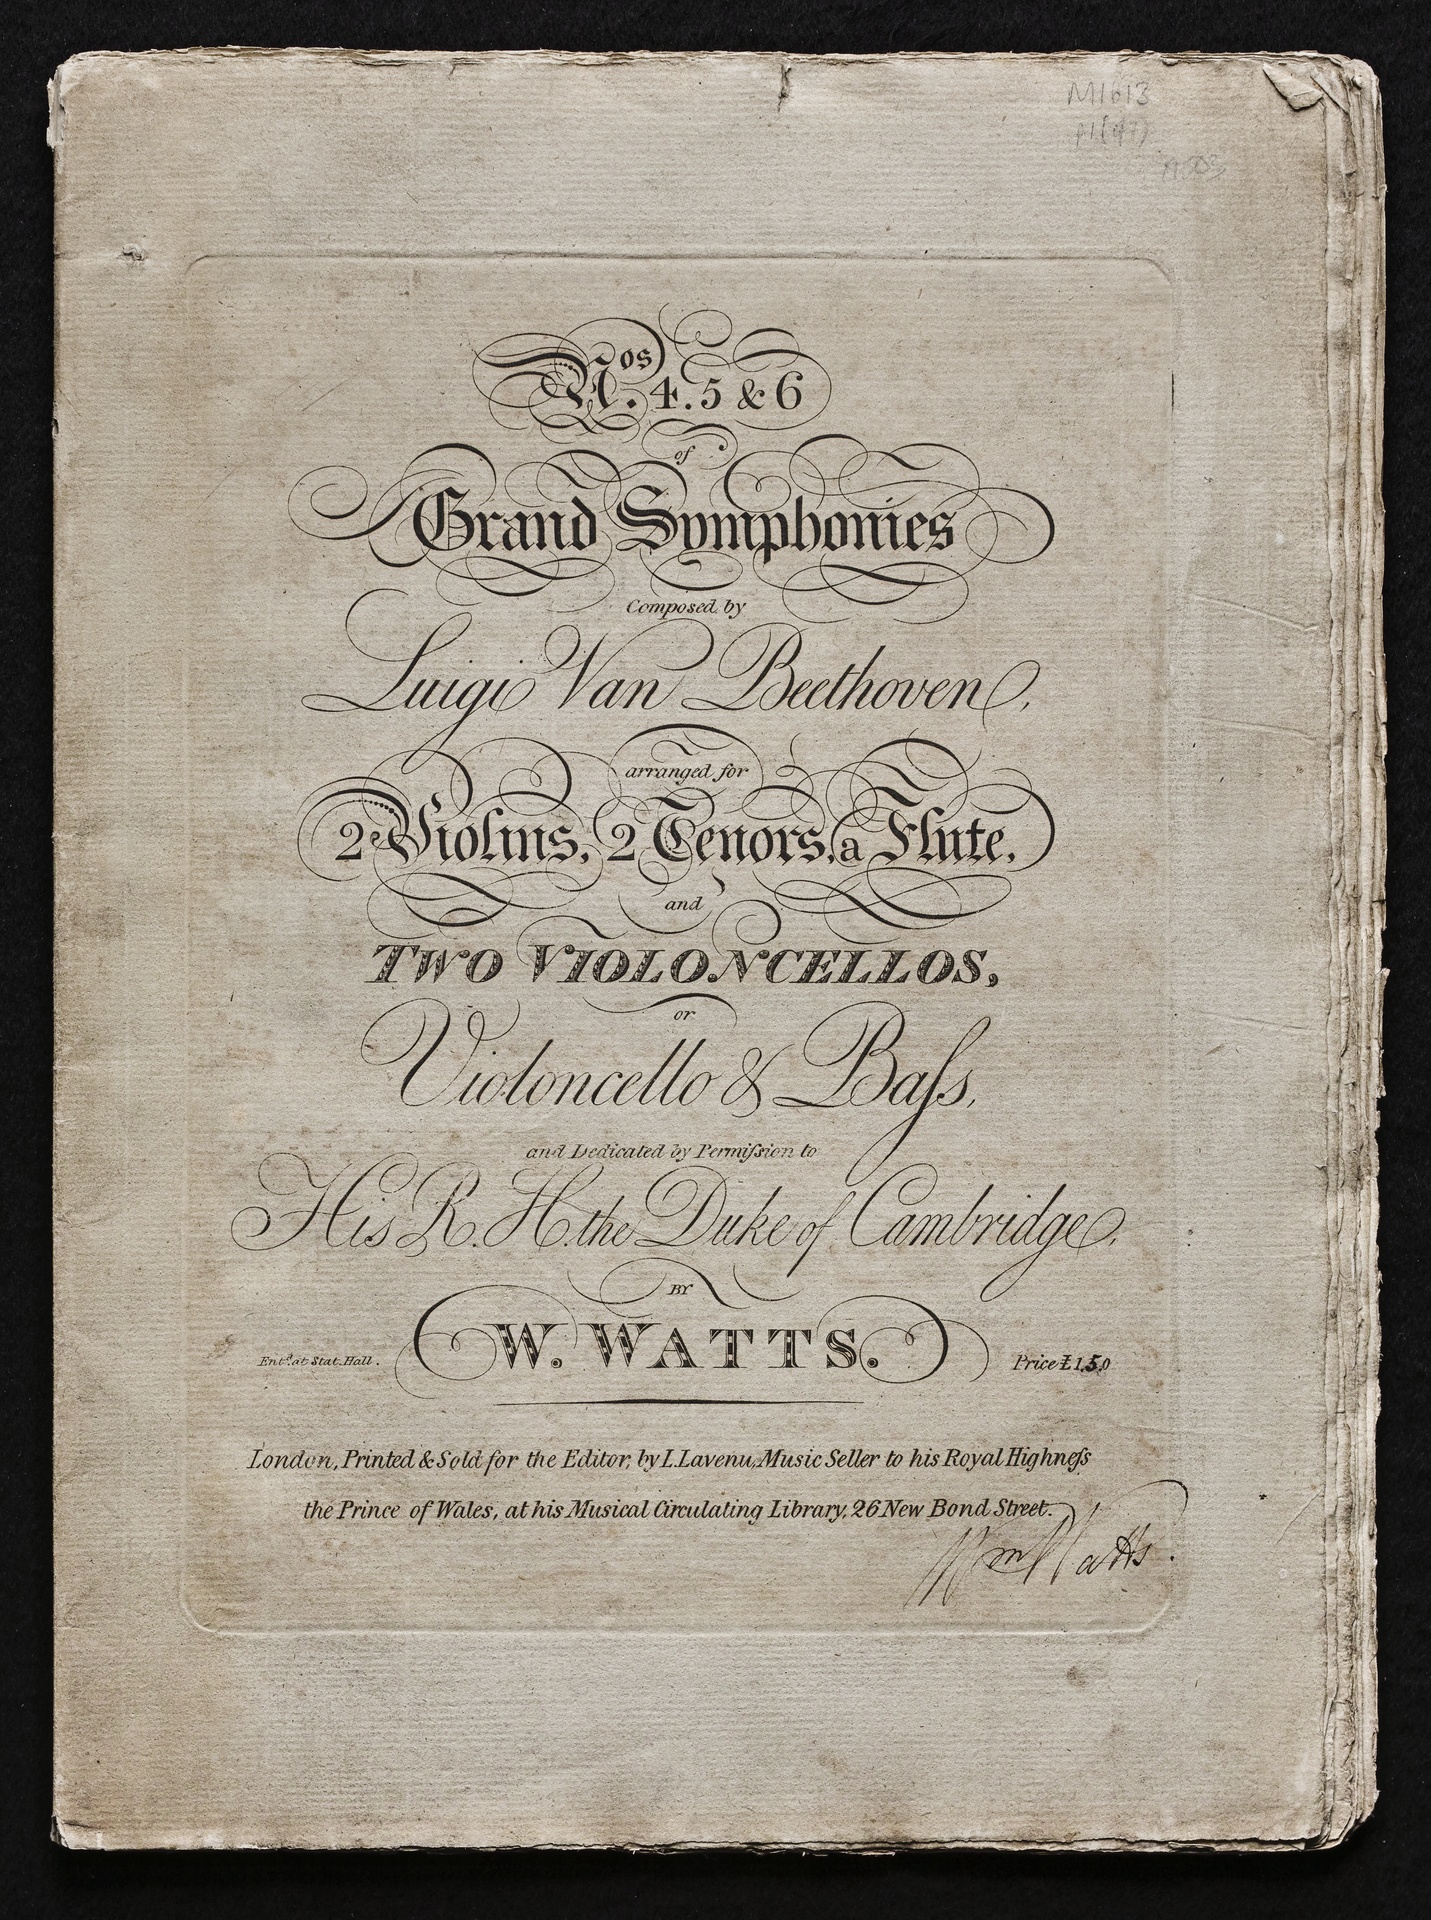 M1613
Nos. 4. 5 & 6
of
Grand Symphonies
Composed by
Luigi Van Beethoven,
arranged for
2 Violins, 2 Tenors, a Flute,
and
TWO VIOLONCELLOS,
or
Violoncello & Baſs,
and Dedicated by Permiſsion to
His R. H. the Duke of Cambridge,
BY
W. WATTS.
Entd. at Stat. Hall.
Price £1,5,0
London, Printed & Sold for the Editor, by L. Lavenu, Music Seller to his Royal Highneſs
the Prince of Wales, at his Musical Circulating Library, 26 New Bond Street.
Wm Watts.